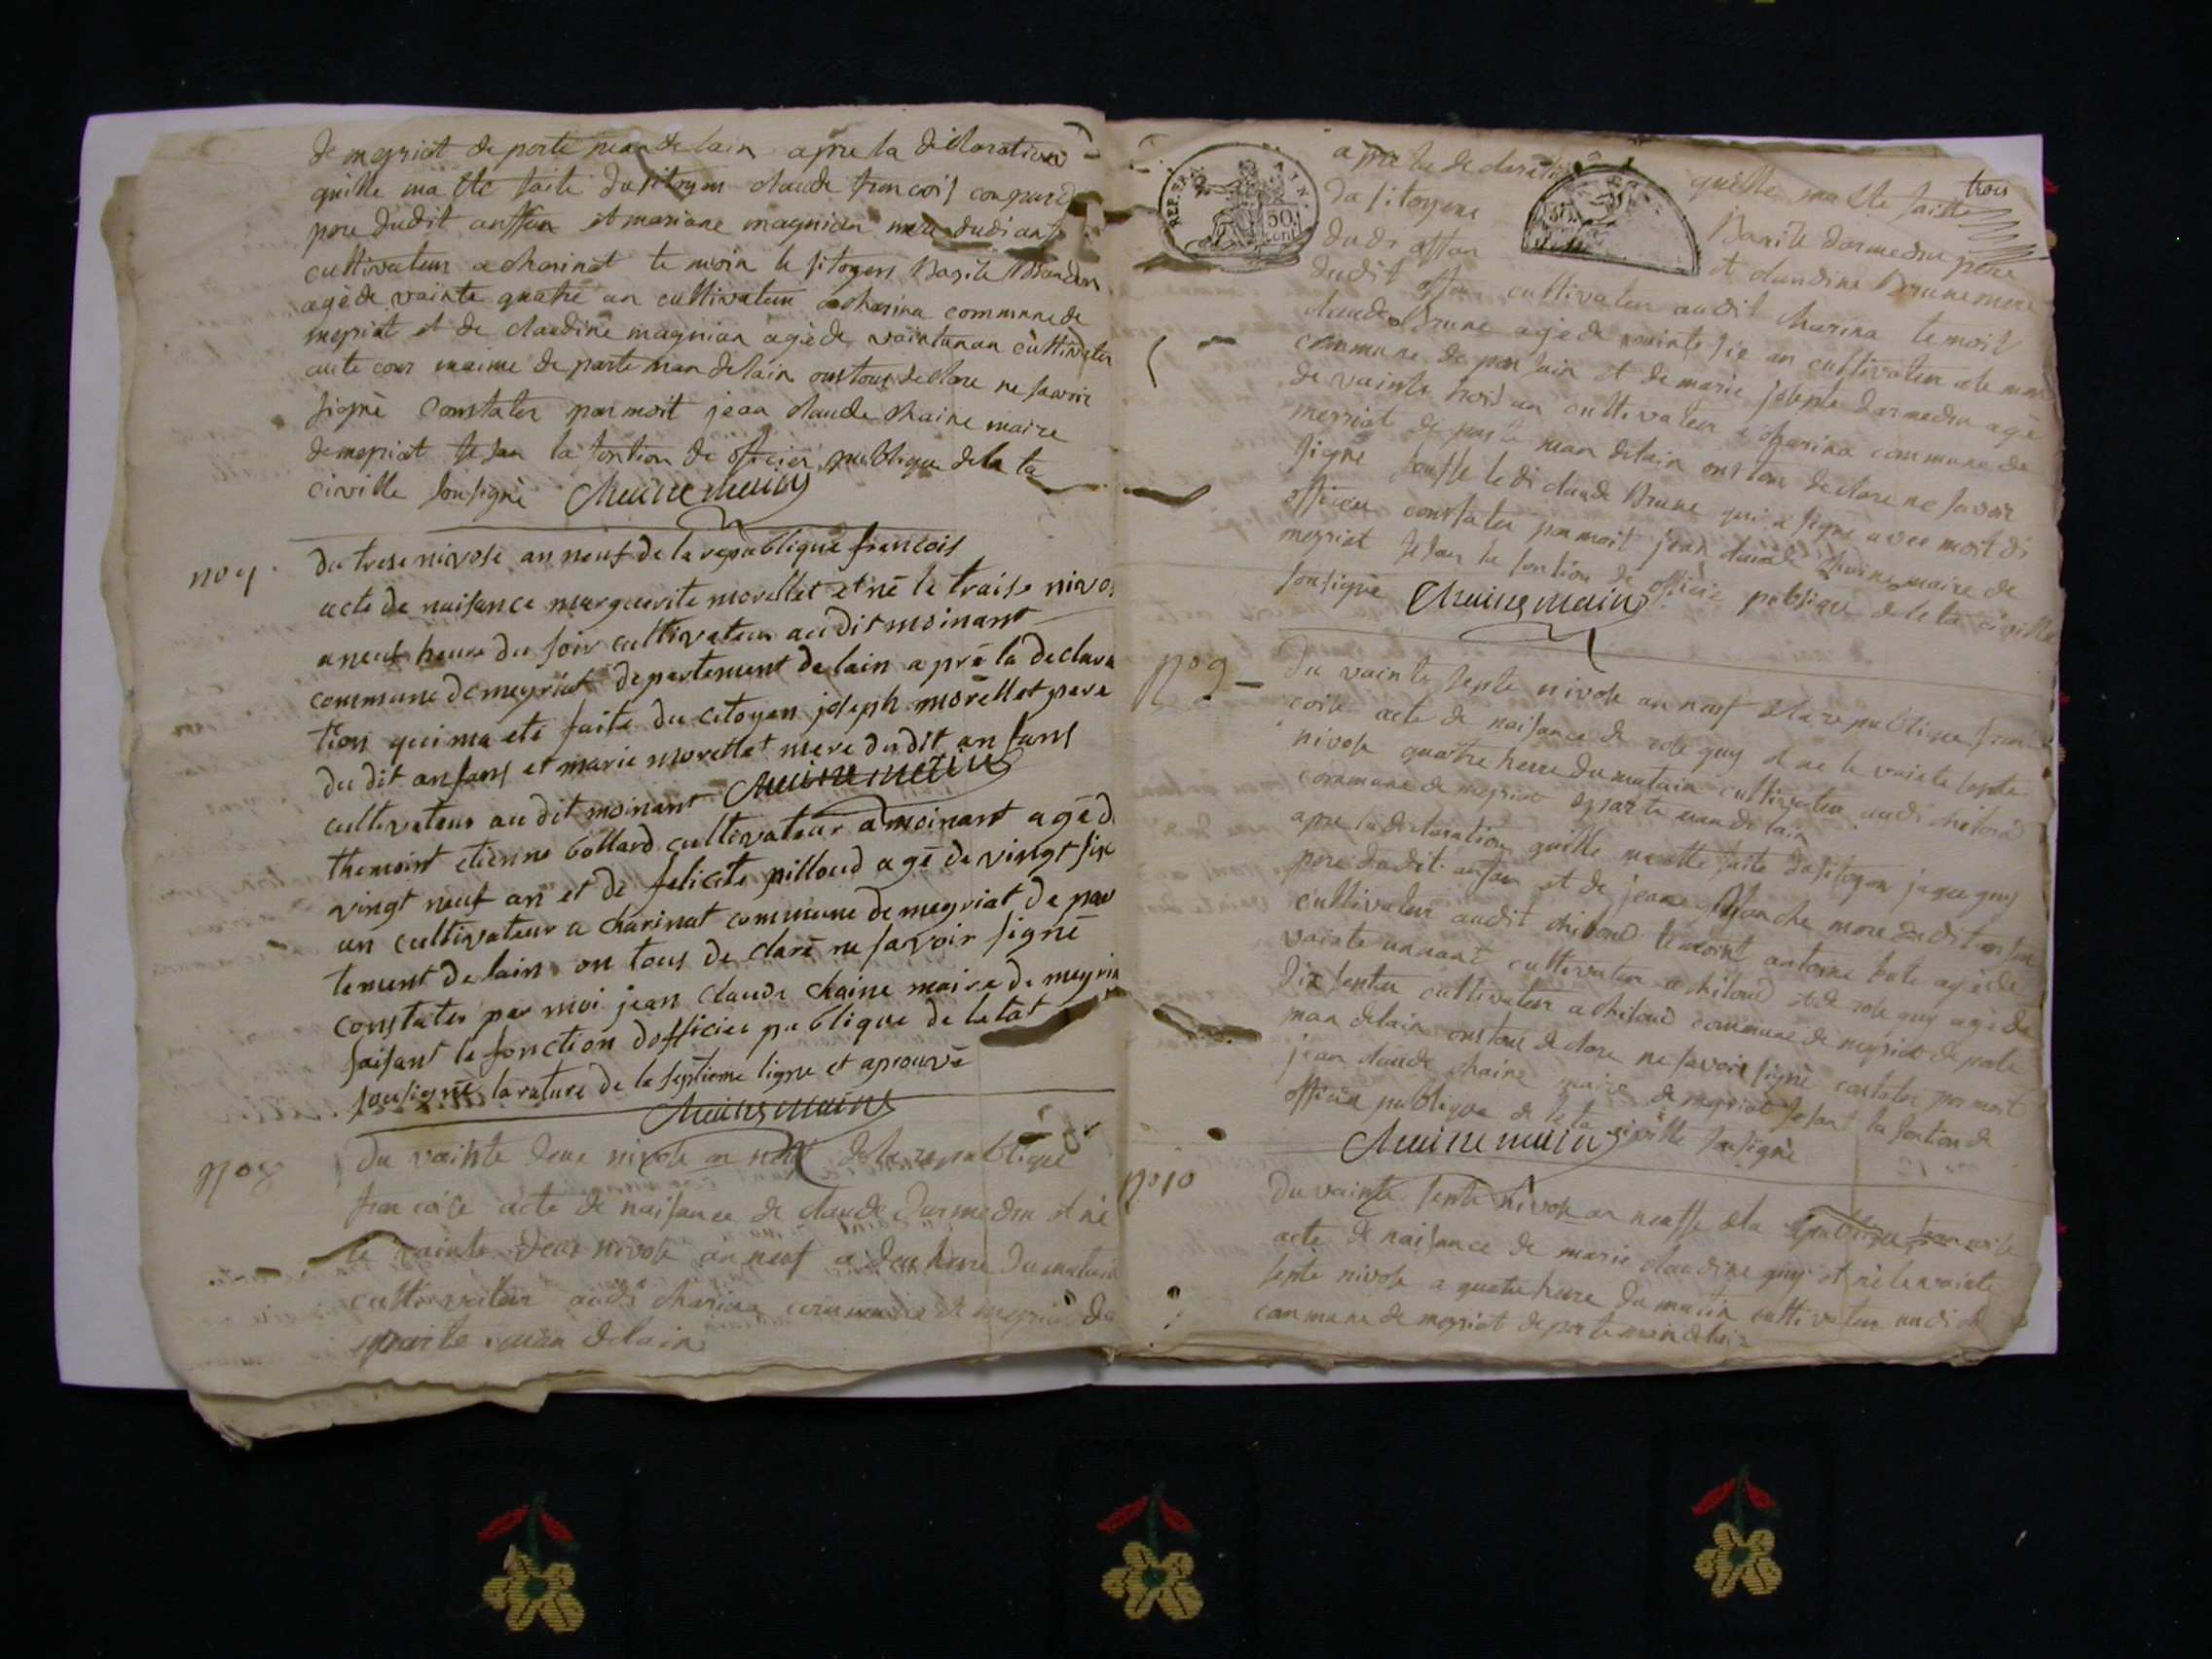 de meyriat de parte man de lain apre la déclaration
quille ma ete faite du sitoyen claude francois
pere dudit anffan et mariane magnien mere dudi anf
cultivateur a charinat te moin le sitoyen Basile
agè de vainte quatre an cultivateur a charina commune de
meyriat et de claudine magnian agè de vaintunan cultivater
de parte man delain onstous declare ne savoir
signè Constater par moit jean claude chaine maire
demeyriat fesan la fontion de officier publique de la ta
civille sousignè Chaine maire
no 7 du trese nivose an neuf de la republique francois
acte de naisance marguerite morellet et né le traise nivos
a neuf heure du soir cultivateur audit moinant
commune de meyriat departement de lain a prè la declara
tion qui ma eté faite du citoyen joseph morellet pere
du dit ansans et marie morellet mere du dit an sans
cultivateur au dit moinant Chaine maire
themoint etienne bollard cultivateur a moinant agé d
vingt neuf an et de felicite pilloud a gé de vingt six
an cultivateur a charinat commune de meyriat de par
tement de lain on tous de claré ne savoir signé
constater par moi jean claude chaine maire de meyria
faisant le fonction dofficier publique de letat
sousigné la rature de la septieme ligne et aprouvé
Chaine maire
no 8 Du vainte deux nivose an neuf dela republique
fran coise acte de naisance de claude Darmedru et né
le vainte deux nivose an neuf a deu heure Du matain
cultivateur audi charina commune de meyriat de
parte man delain
trois
REP. FRA
50 cent
apre la declaration quelle ma ete faitte
da sitoyene Basile darmedru pere
dudi affan et claudine Brune mere
dudit affan cultivateur audit charina temoit
claude Brune agè de vainte sie an cultivateur
commune de et de marie joseptte darmedru agè
de vainte trois an cultivateur a charina commune de
meyriat de parte man delain ons tous declare ne savoir
signe le di claude Brune qui a signe avec moit di
officier constater par moit jean claude Chaine maire de
meyriat fesan la fontion de officie publique de le ta civille
sousignè Chaine maire
no 9 Du vainte septe nivose an neuf de la republique fran
coise acte de naisance de rose guy et ne le vainte septe
nivose quatre heure du matain cultivateur audi chiloud
commune de meyriat de parte man de lain
apre la declaration quille ma ette faite da sitoyen jaque guy
pere dudit anfan et de jeane Blanche mere dudit anfan
cultivateur audit chiloud temoint antoine bate agè de
vainte unnant cultivateur a chiloud et de rose guy agè de
Dix cultivateur a chiloud commune de meyriat de parte
man delain onstous declare ne savoir signè constater par moit
jean claude chaine maire de meyriat fesant la fontion de
officier publique de le ta civille sousignè
Chaine maire
no 10 Du vainte septe nivose an neuffe de la republique francoise
acte de naisance de marie claudine guy et nè le vainte
septe nivose a quatre heure du matin cultivateur audi chi
commune de meyriat de parte man de lain